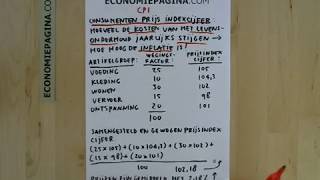 ECONOMIEPAGINA.COM
CPI
CONSUMENTEN PRIJS INDEXCIJFER:
HOEVEEL DE KOSTEN VAN HET LEVENS-
ONDERHOUD JAARLIJKS STIJGEN →
HOE HOOG DE INFLATIE IS!
ARTIKELGROEP: WEGINGS- PRIJSINDEX
FACTOR: CIJFER:
VOEDING 25 105
KLEDING 10 104,3
WONEN 30 102
VERVOER 15 98
ONTSPANNING 20 101
100
SAMENGESTELD EN GEWOGEN PRIJSINDEX
CIJFER
(25 x 105) + (10 x 104,3) + (30 x 102) +
(15 x 98) + (20 x 101)
100 102,18
PRIJZEN ZIJN GEMIDDELD MET 2,18% ↑